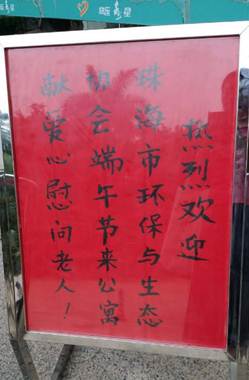 热烈欢迎
珠海市环保与生态
协会端午节来公寓
献爱心慰问老人！